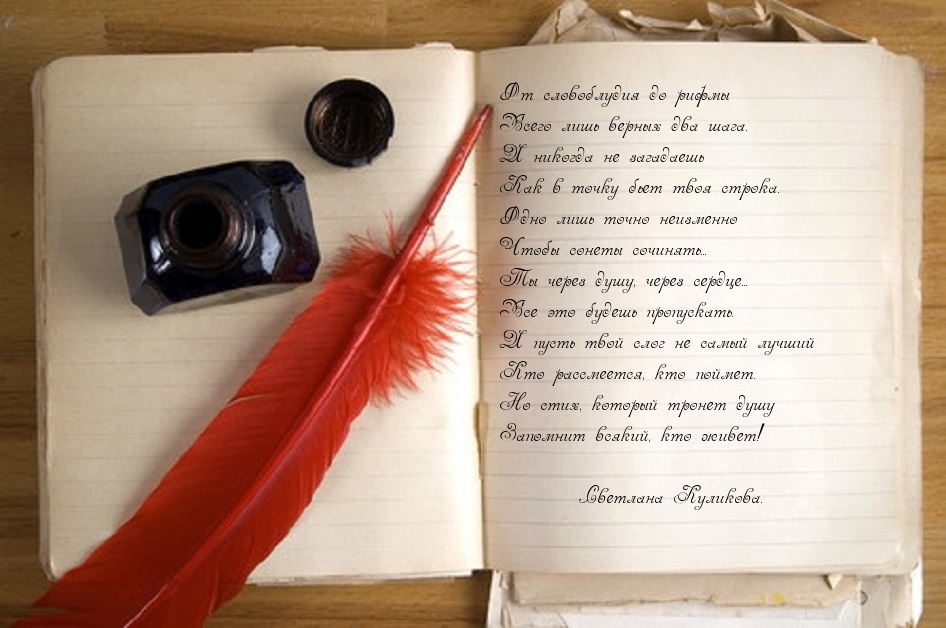 От словоблудия до рифмы
Всего лишь верных два шага.
И никогда не загадаешь
Как в точку бьет твоя строка.
Одно лишь точно неизменно
Чтобы сонеты сочинять...
Ты через душу, через сердце...
Все это будешь пропускать.
И пусть твой слог не самый лучший
Кто рассмеется, кто поймет.
Но стих, который тронет душу
Запомнит всякий, кто живет!
Светлана Куликова.